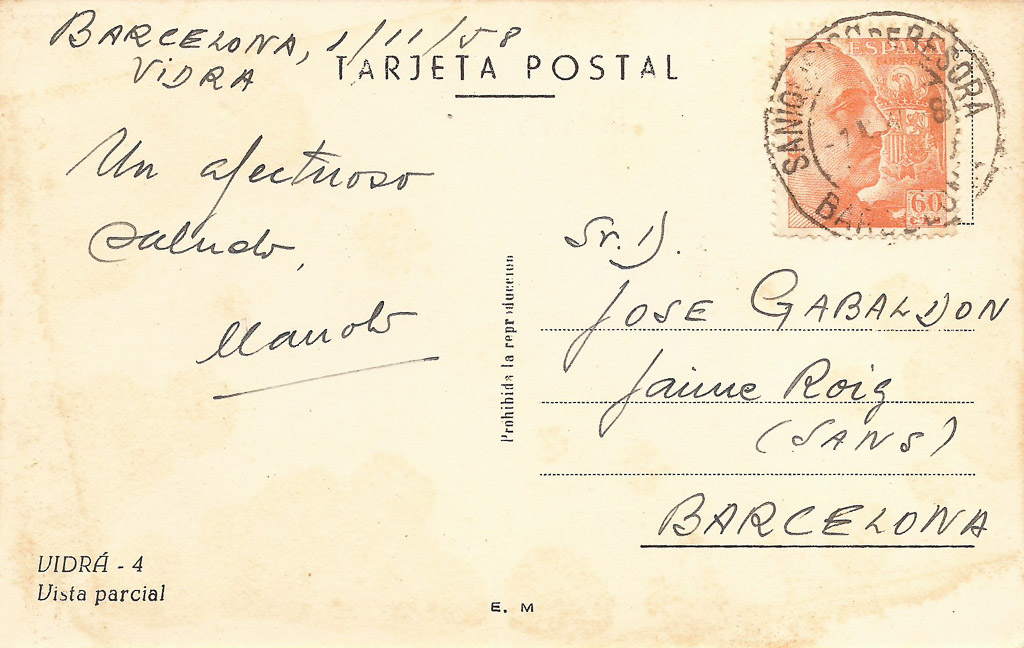 BARCELONA, 1/11/58
VIDRA
TARJETA POSTAL
Un afectuoso
saludo,
Manolo
ESPAÑA
CORREOS
60
CTS
BARCELONA
Sr. D.
JOSE GABALDON
Jaime Roig
(SANS)
BARCELONA
Prohibida la reproducción
VIDRÁ - 4
Vista parcial
E. M